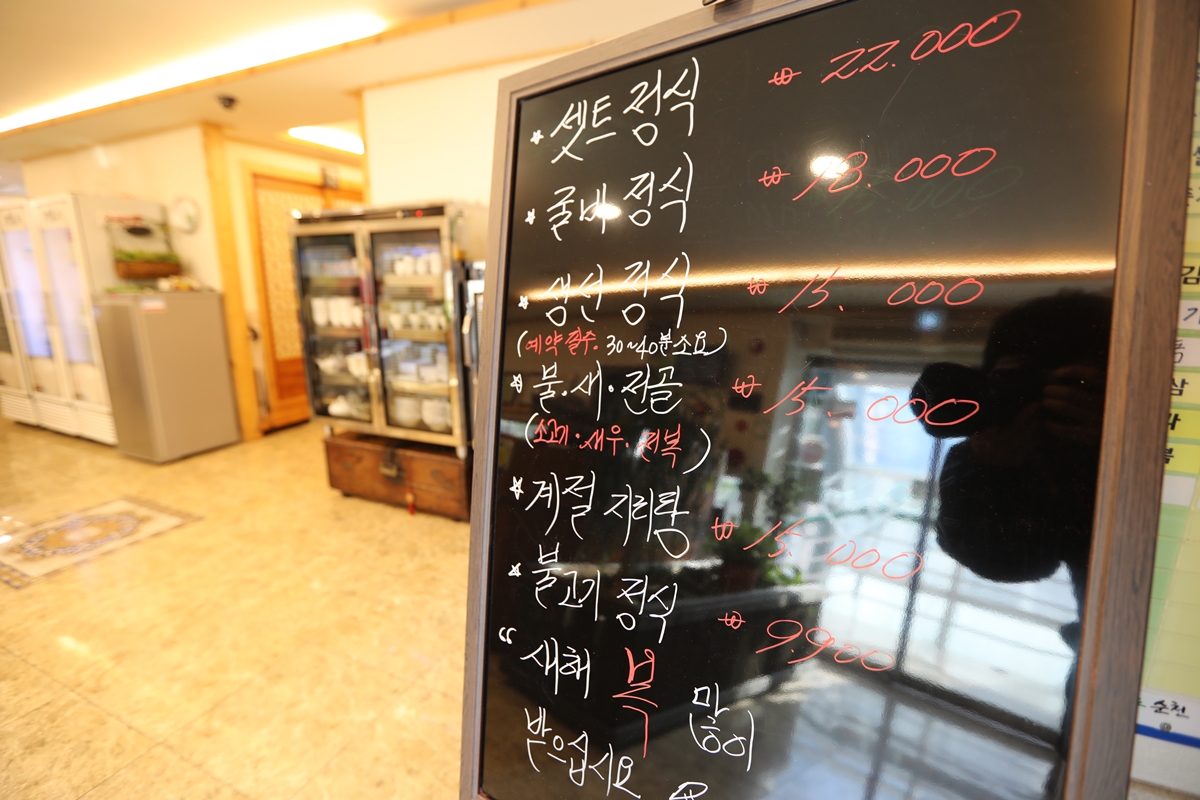 * 셋트 정식 ₩ 22.000
* 굴비 정식 ₩ 18.000
* 생선 정식 ₩ 15.000
(예약필수. 30~40분소요)
* 불·새·전골 ₩ 15.000
(소고기·새우·전복)
* 계절 지리탕 ₩ 15.000
* 불고기 정식 ₩ 9.900
“새해 복 많이
받으십시요
순천